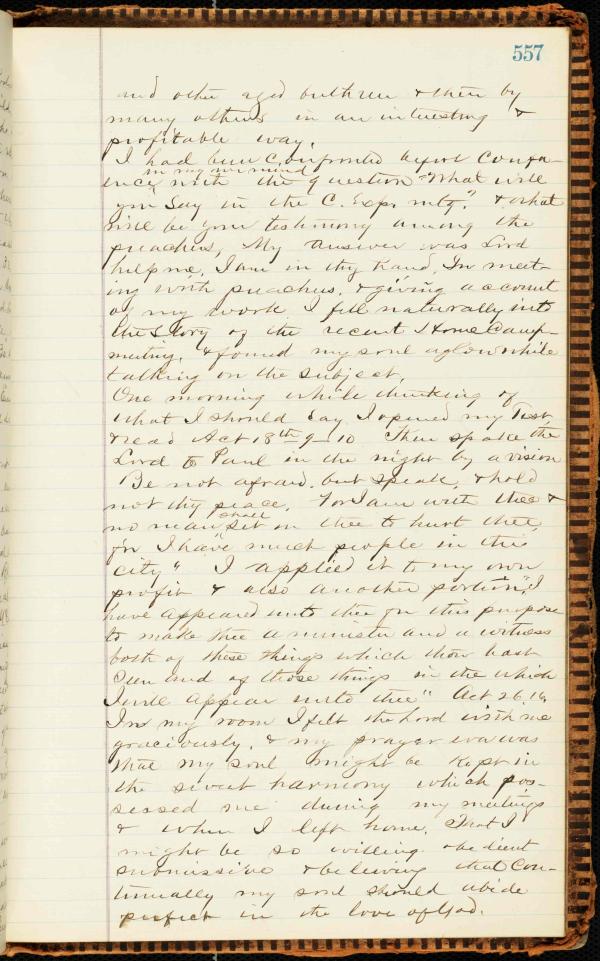 557
and other aged brethren & then by
many others in an interesting &
profitable way.
I had been confronted before Confer-
in my own mind
ence, with the question "What will
you say in the C. Expr. mtg." & what
will be your testimony among the
preachers, My answer was Lord
help me, I am in thy hand, In meet-
ing with preachers, & giving account
of my work I fell naturally into
the Story of the recent Home Camp-
meeting, & found my soul aglow while
talking on the subject.
One morning while thinking of
what I should say I opened my Test,
& read Act 18th 9-10 Then spake the
Lord to Paul in the night by a vision
Be not afraid, but speak, & hold
not thy peace, For I am with thee &
shall
no man set on thee to hurt thee,
for I have much people in this
city" I applied it to my own
profit & also another portion, "I
have appeared unto thee for this purpose
to make thee a minister and a witness
both of these things which thou hast
seen and of those things in the which
I will appear unto thee" Act 26,16,
In my room I felt the Lord with me
graciously, & my prayer was
that my soul might be kept in
the sweet harmony which pos-
sessed me during my meetings
& when I left home, That I
might be so willing obedient
submissive & believing that con-
tinually my soul should abide
perfect in the love of God.